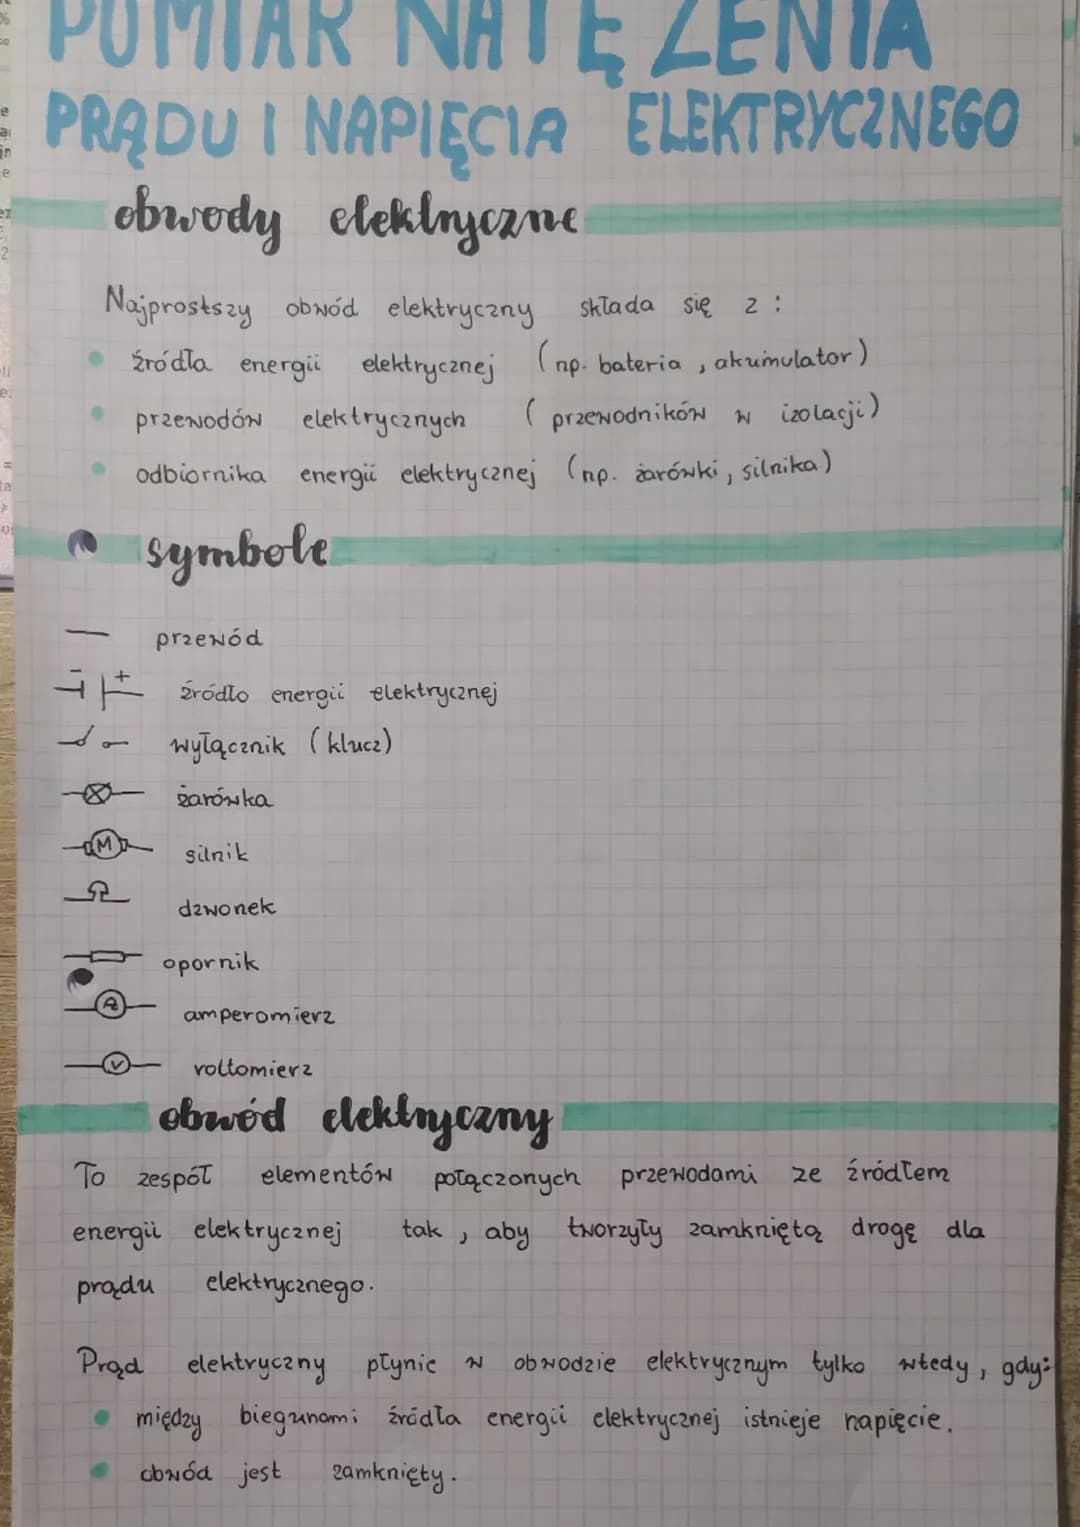 POMIAR NATĘŻENIA
PRĄDU I NAPIĘCIA ELEKTRYCZNEGO
obwody elektryczne
Najprostszy obwód elektryczny składa się z :
źródła energii elektrycznej (np. bateria , akumulator)
przewodów elektrycznych (przewodników w izolacji)
odbiornika energii elektrycznej (np. żarówki, silnika)
symbole
przewód
- + źródło energii elektrycznej
wyłącznik (klucz)
żarówka
M silnik
dzwonek
opornik
A amperomierz
V woltomierz
obwód elektryczny
To zespół elementów połączonych przewodami ze źródłem
energii elektrycznej tak , aby tworzyły zamkniętą drogę dla
prądu elektrycznego.
Prąd elektryczny płynie w obwodzie elektrycznym tylko wtedy, gdy:
między biegunami źródła energii elektrycznej istnieje napięcie.
obwód jest zamknięty.